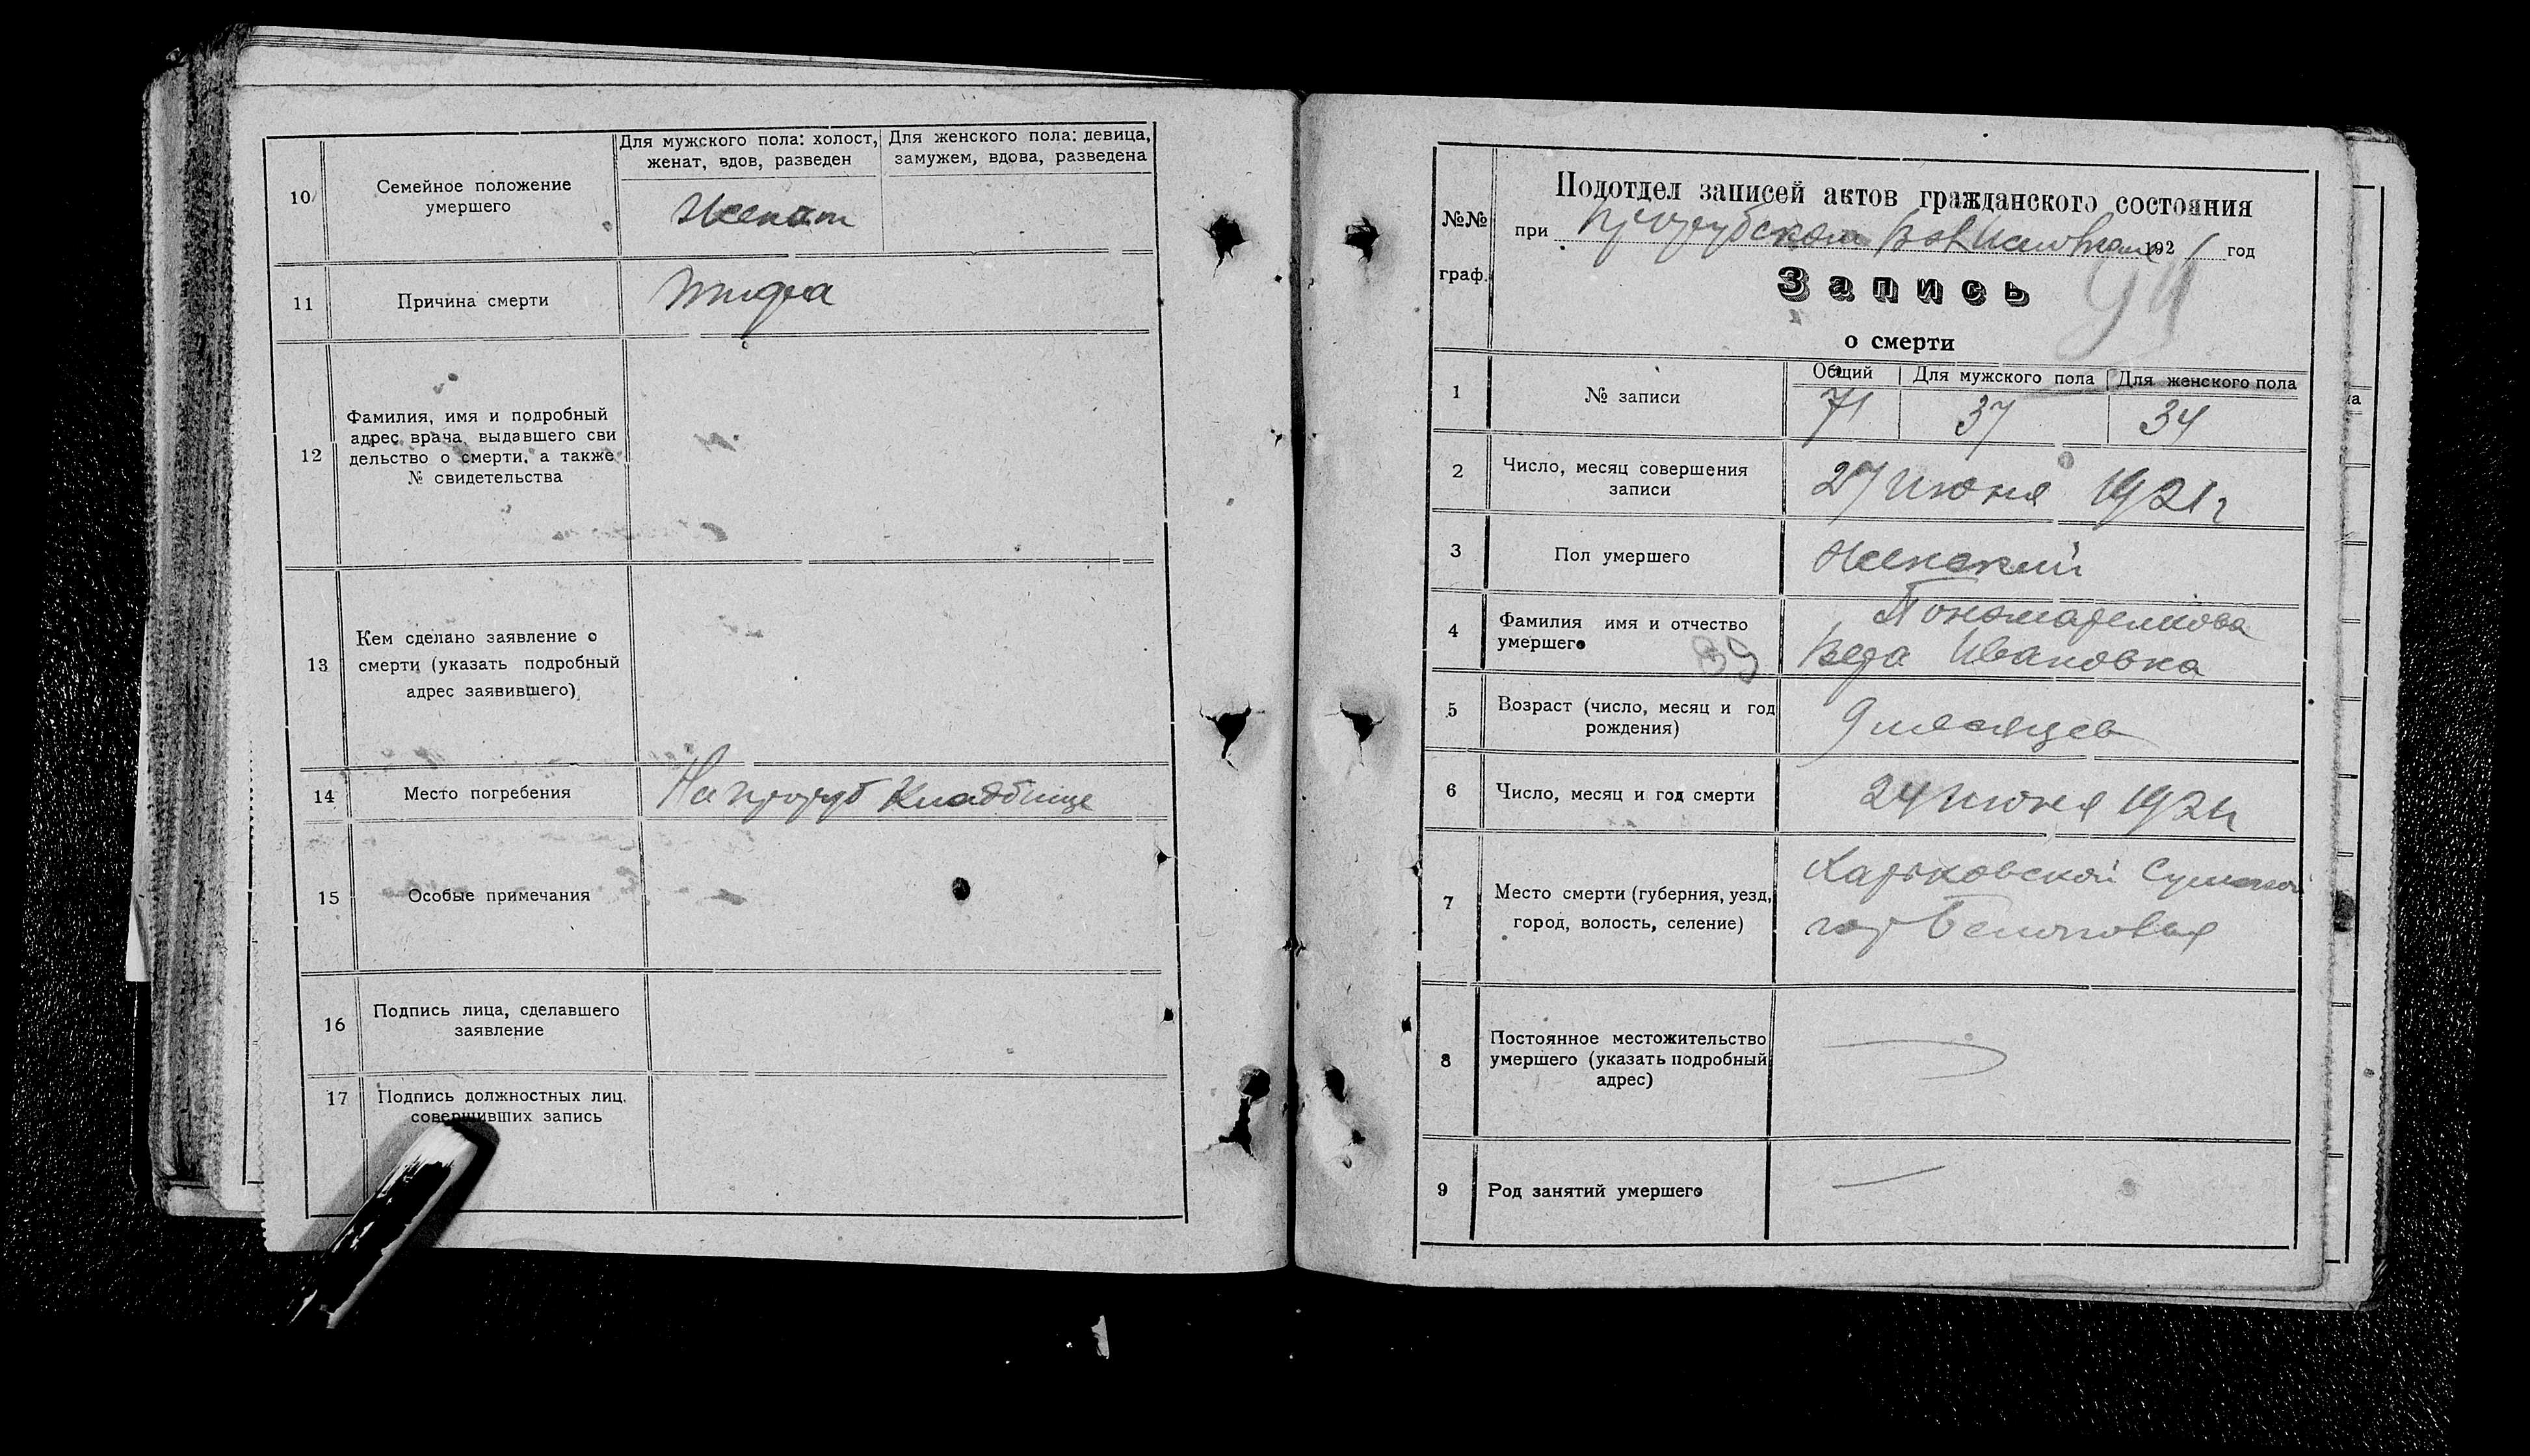 10
Семейное положение
умершего
Для мужского пола: холост,
женат, вдов, разведен
Для женского пола: девица,
замужем, вдова, разведена
женат
11
Причина смерти
тифа
12
Фамилия, имя и подробный
адрес врача, выдавшего сви
дельство о смерти, а также
№ свидетельства
13
Кем сделано заявление о
смерти (указать подробный
адрес заявившего)
14
Место погребения
На проруб Кладбище
15
Особые примечания
16
Подпись лица, сделавшего
заявление
17
Подпись должностных лиц,
совершивших запись
№№
граф.
Подотдел записей актов гражданского состояния
при Прорубском 192 1 год
Запись
о смерти
1
№ записи
Общий
Для мужского пола
Для женского пола
71
37
34
2
Число, месяц совершения
записи
27 июня 1921 г
3
Пол умершего
Женский
4
Фамилия имя и отчество
умершего
Пономаренкова
Вера Ивановна
5
Возраст (число, месяц и год
рождения)
9 месяцев
6
Число, месяц и год смерти
24 июня 1921
7
Место смерти (губерния, уезд,
город, волость, селение)
Харьковской Сумской
гор Белополья
8
Постоянное местожительство
умершего (указать подробный
адрес)
9
Род занятий умершего